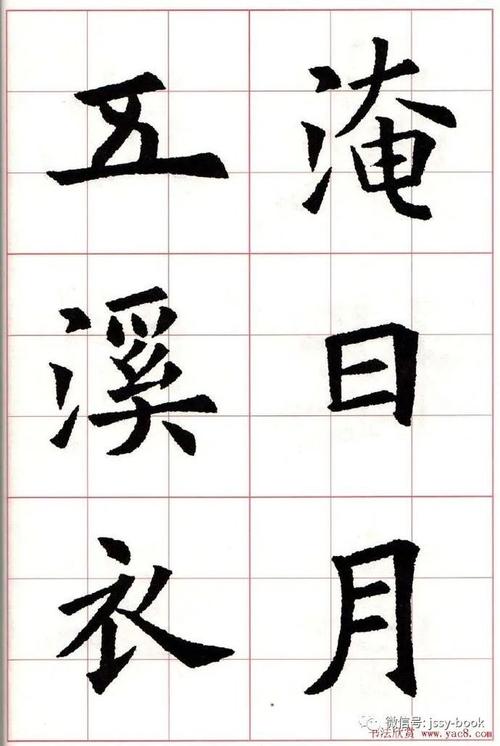 淹日月
五溪衣
微信号: jssy-book
书法欣赏 www.yac8.com